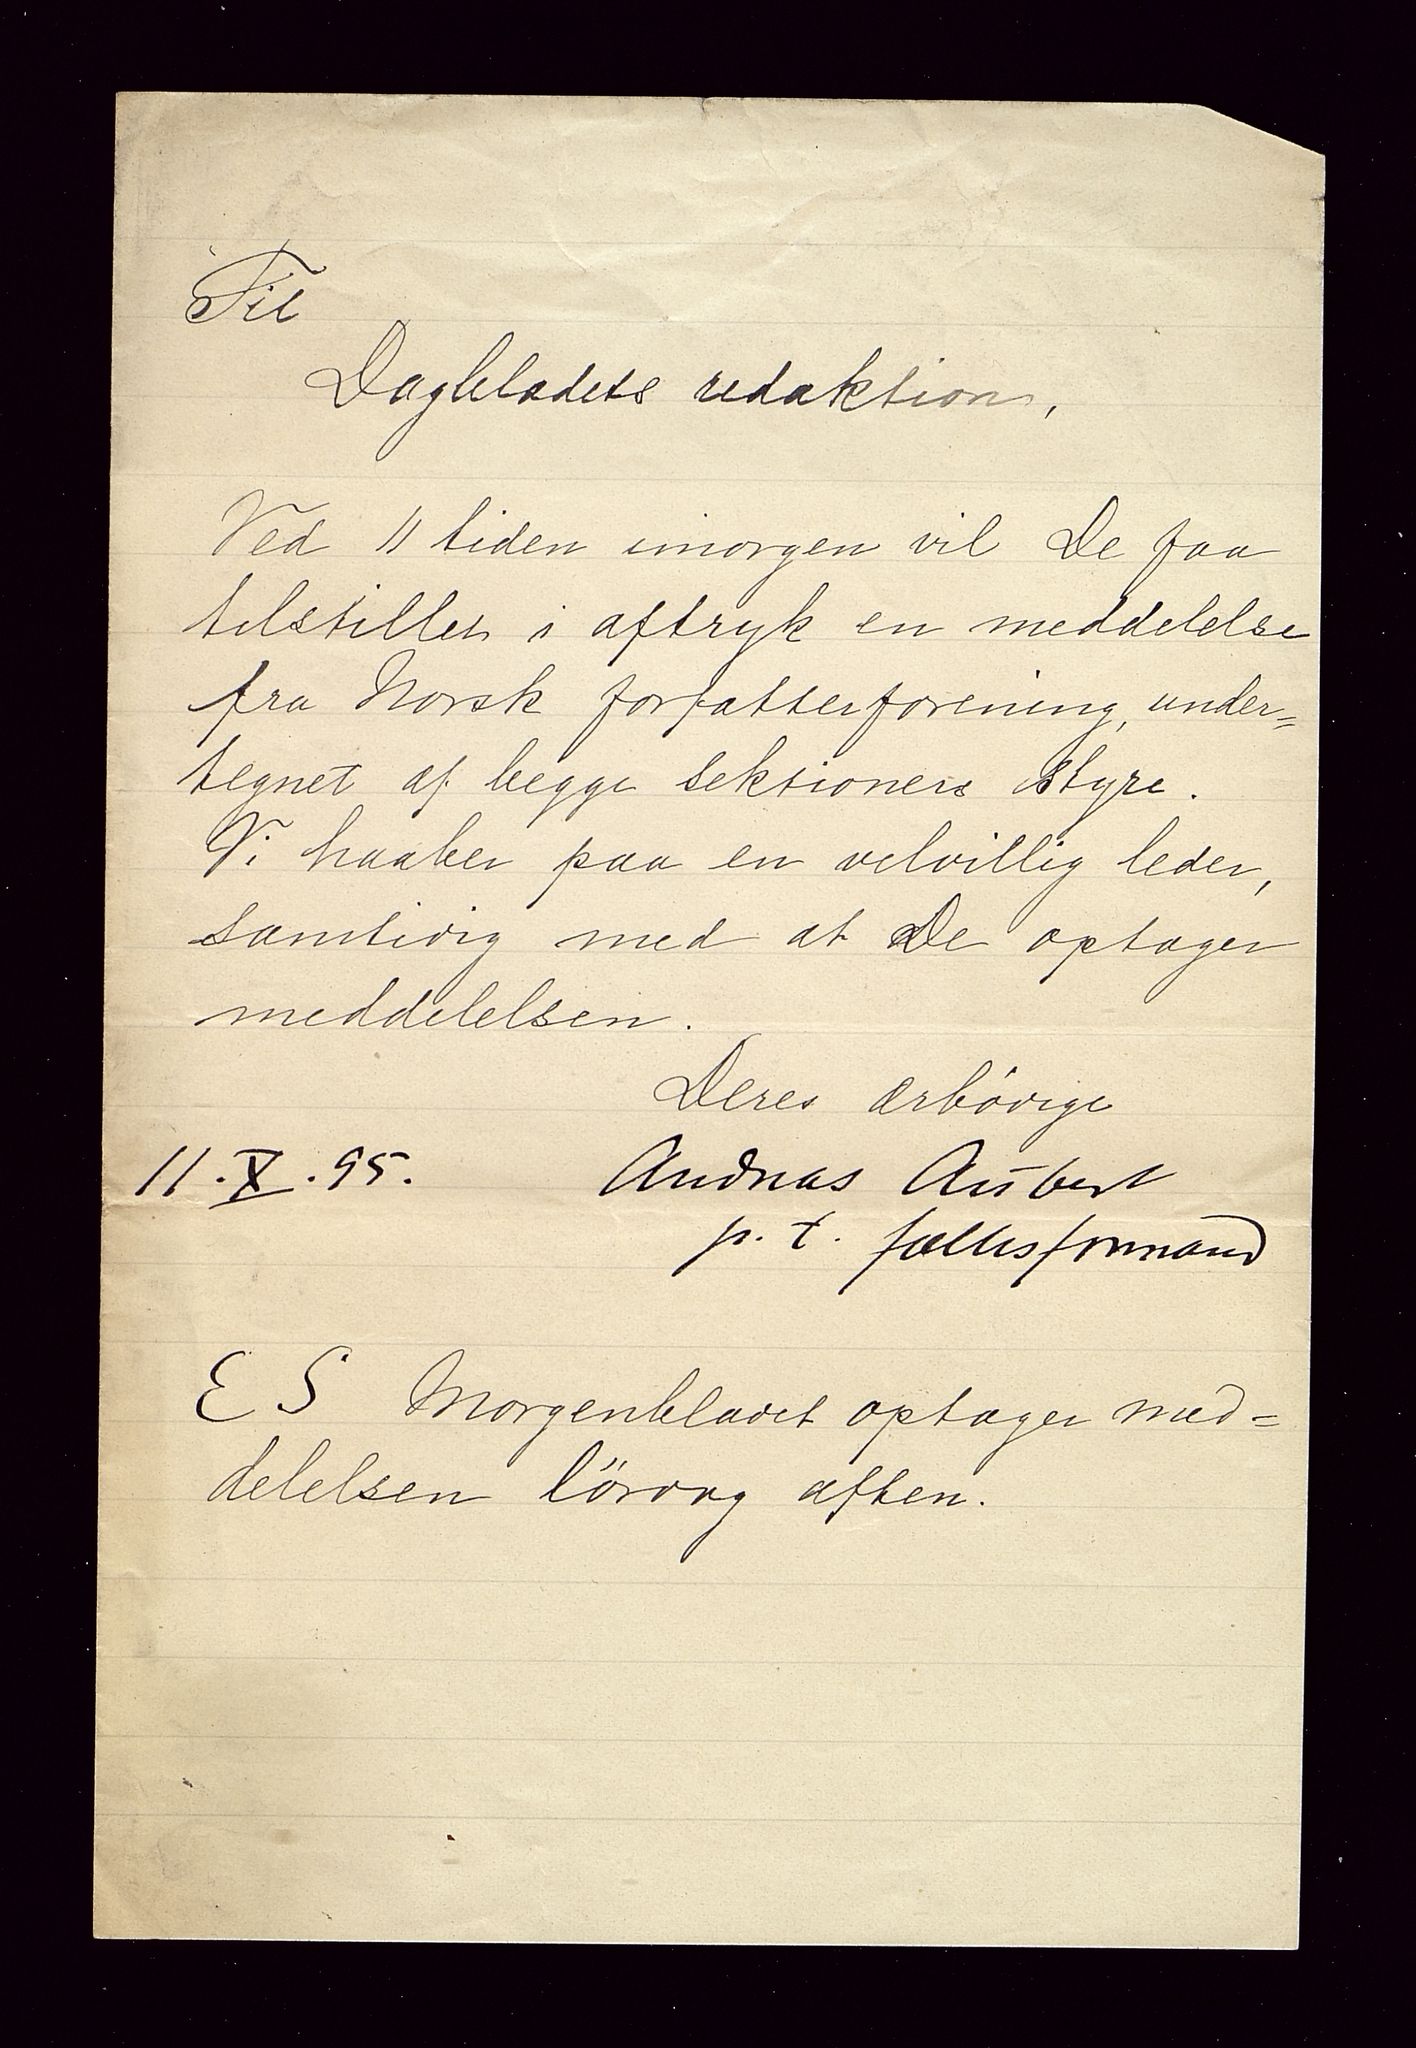 Til
Dagbladets redaktion,
Ved 11 tiden imorgen vil De faa
tilstillet i aftryk en meddelelse
fra Norsk forfatterforening, under=
tegnet af begge sektioners styre.
Vi haaber paa en velvillig leder,
samtidig med at De optager
meddelelsen.
Deres ærbödige
11.X.95. Andreas Aubert
p. t. fællesformand
E S Morgenbladet optager med=
delelsen lördag aften.